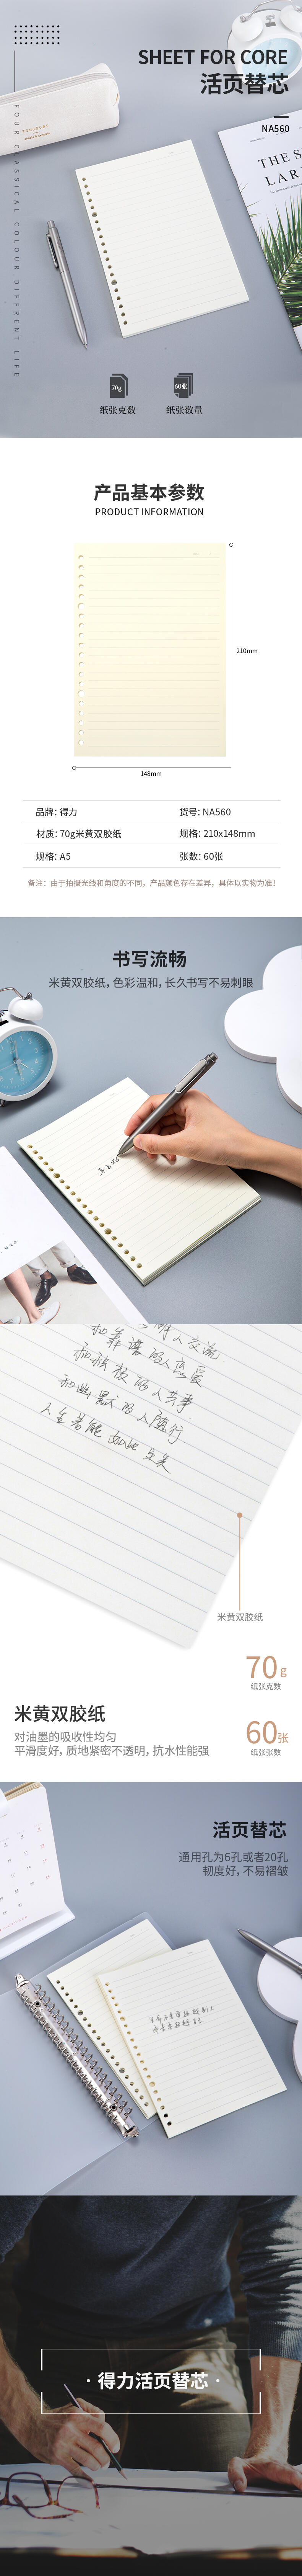 SHEET FOR CORE
活页替芯
NA560
FOUR CLASSICAL COLOUR DIFFRENT LIFE
TOUJOURS
THE S
LAR
70g
60张
纸张克数
纸张数量
产品基本参数
PRODUCT INFORMATION
210mm
148mm
品牌：得力
货号：NA560
材质：70g米黄双胶纸
规格：210x148mm
规格：A5
张数：60张
备注：由于拍摄光线和角度的不同，产品颜色存在差异，具体以实物为准！
书写流畅
米黄双胶纸，色彩温和，长久书写不易刺眼
和靠谱的人恋爱
和积极的人共事
和幽默的人随行
人生若能如此
米黄双胶纸
70g
纸张克数
60张
纸张张数
米黄双胶纸
对油墨的吸收性均匀
平滑度好，质地紧密不透明，抗水性能强
活页替芯
通用孔为6孔或者20孔
韧度好，不易褶皱
· 得力活页替芯 ·